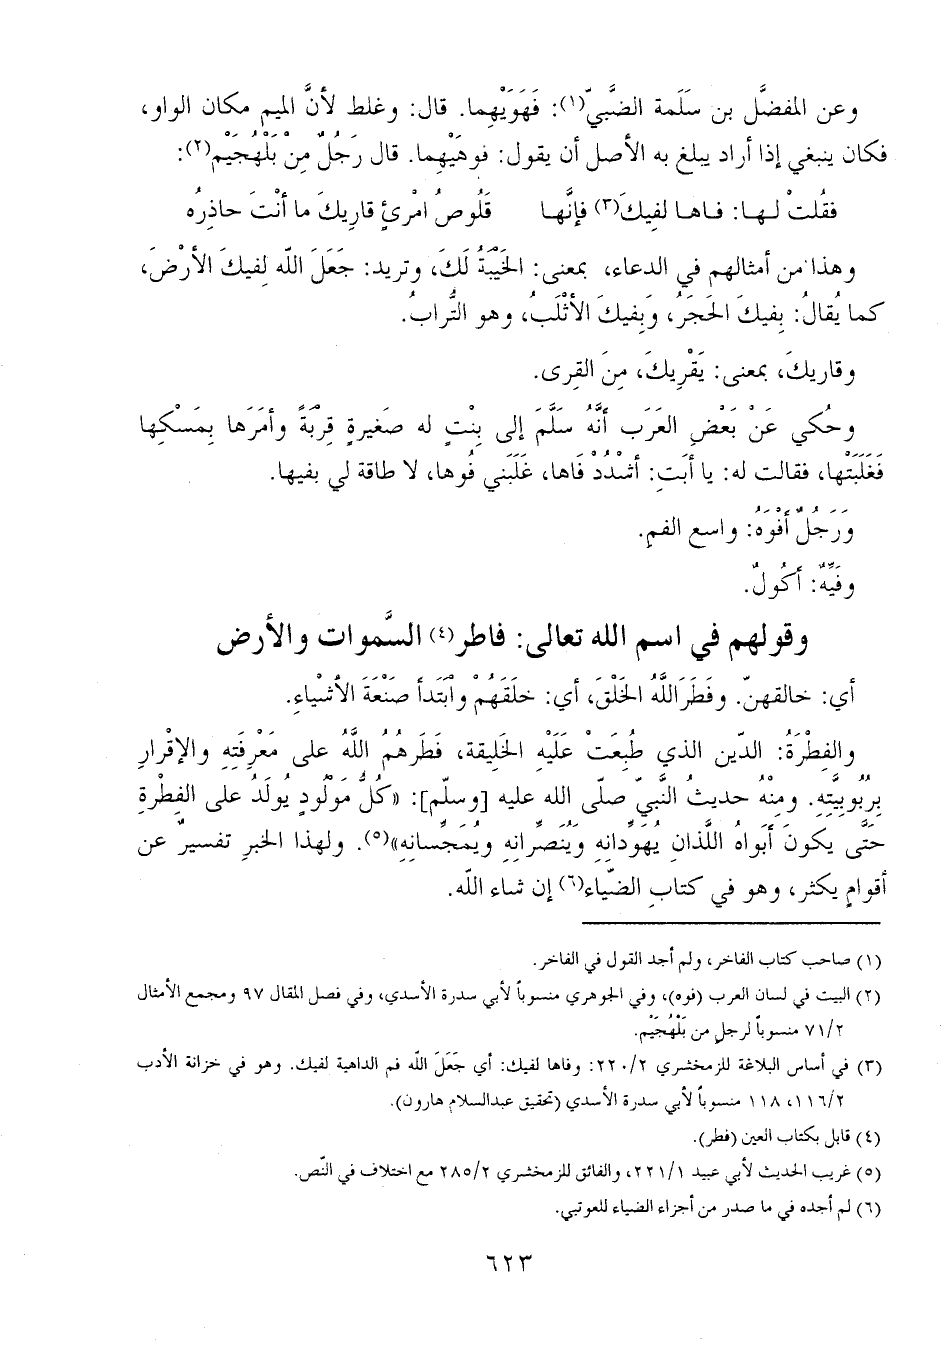 وعن المفضَّل بن سَلَمة الضَّبيّ(١): فَهَوَيْهما. قال: وغلط لأنَّ الميم مكان الواو،
فكان ينبغي إذا أراد يبلغ به الأصل أن يقول: فوهَيْهِما. قال رَجُلٌ مِنْ بَلْهُجَيْم(٢):
فقُلتْ لـها: فـاهـا لفيكَ(٣) فإنَّهـا قَلُوصُ امْرئٍ قاريكَ ما أنْتَ حاذِرُه
وهذا من أمثالهم في الدعاء، بمعنى: الخَيْبَةُ لَكَ، وتريد: جَعَلَ اللّه لفيكَ الأرْضَ،
كما يُقالُ: بِفيكَ الحَجَرُ، وَبِفيكَ الأثْلَبُ، وهو التُّرابُ.
وقاريكَ، بمعنى: يَقْرِيكَ، مِنَ القِرى.
وحُكي عَنْ بَعْضِ العَرَب أنَّهُ سَلَّمَ إلى بِنْتٍ له صَغيرةٍ قِرْبَةً وأمَرَها بِمَسْكِها
فَغَلَبَتْها، فقالت له: يا أبَتِ: أشْدُدْ فَاها، غَلَبَني فُوها، لا طاقة لي بفيها.
وَرَجُلٌ أفْوَهُ: واسع الفم.
وفَيِّهٌ: أكُولٌ.
وقولهم في اسم الله تعالى: فاطر(٤) السَّموات والأرض
أي: خالقهنّ. وفَطَرَاللَّهُ الخَلْقَ، أي: خلَقَهُمْ وابْتَدأ صَنْعَةَ الأشْياءِ.
والفِطْرَةُ: الدّين الذي طُبِعَتْ عَلَيْهِ الخليقة، فَطَرهُمُ اللَّهُ على مَعْرفَتِهِ والإقْرارِ
بِرُبُوبِيَّتِهِ. ومِنْهُ حديثُ النَّبيّ صلّى الله عليه [وسلّم]: «كلُّ مَوْلُودٍ يُولَدُ على الفِطْرةِ
حَتَّى يكونَ أبَواهُ اللَّذانِ يُهَوِّدانِهِ وَيُنَصِّرانِهِ ويُمَجِّسانِهِ»(٥). ولهذا الخبرِ تفسيرٌ عن
أقوامٍ يكثر، وهو في كتابِ الضّياء(٦) إن شاء اللّه.
(١) صاحب كتاب الفاخر، ولم أجد القول في الفاخر.
(٢) البيت في لسان العرب (فوه)، وفي الجوهري منسوباً لأبي سدرة الأسدي، وفي فصل المقال ٩٧ ومجمع الأمثال
٧١/٢ منسوباً لرجلٍ من بَلْهُجَيْم.
(٣) في أساس البلاغة للزمخشري ٢٢٠/٢: وفاها لفيك: أي جَعَلَ اللّه فم الداهية لفيك. وهو في خزانة الأدب
١١٦/٢، ١١٨ منسوباً لأبي سدرة الأسدي (تحقيق عبدالسلام هارون).
(٤) قابل بكتاب العين (فطر).
(٥) غريب الحديث لأبي عبيد ٢٢١/١، والفائق للزمخشري ٢٨٥/٢ مع اختلاف في النّص.
(٦) لم أجده في ما صدر من أجزاء الضياء للعوتبي.
٦٢٣